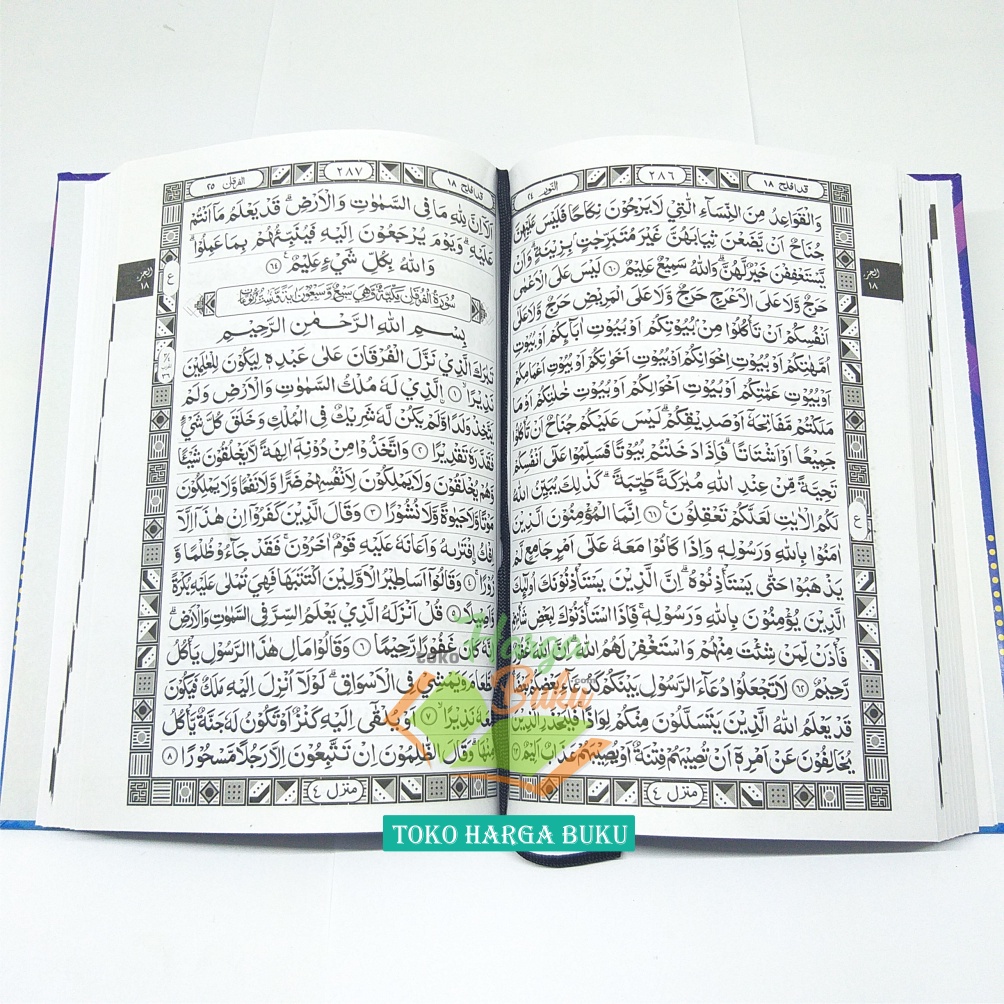 قد افلح ١٨
٢٨٦
النور ٢٤
وَالْقَوَاعِدُ مِنَ النِّسَاۤءِ الّٰتِيْ لَا يَرْجُوْنَ نِكَاحًا فَلَيْسَ عَلَيْهِنَّ
جُنَاحٌ اَنْ يَّضَعْنَ ثِيَابَهُنَّ غَيْرَ مُتَبَرِّجٰتٍۢ بِزِيْنَةٍۗ وَاَنْ
يَّسْتَعْفِفْنَ خَيْرٌ لَّهُنَّۗ وَاللّٰهُ سَمِيْعٌ عَلِيْمٌ ٦٠ لَيْسَ عَلَى الْاَعْمٰى
حَرَجٌ وَّلَا عَلَى الْاَعْرَجِ حَرَجٌ وَّلَا عَلَى الْمَرِيْضِ حَرَجٌ وَّلَا عَلٰٓى
اَنْفُسِكُمْ اَنْ تَأْكُلُوْا مِنْۢ بُيُوْتِكُمْ اَوْ بُيُوْتِ اٰبَاۤىِٕكُمْ اَوْ بُيُوْتِ
اُمَّهٰتِكُمْ اَوْ بُيُوْتِ اِخْوَانِكُمْ اَوْ بُيُوْتِ اَخَوٰتِكُمْ اَوْ بُيُوْتِ اَعْمَامِكُمْ
اَوْ بُيُوْتِ عَمّٰتِكُمْ اَوْ بُيُوْتِ اَخْوَالِكُمْ اَوْ بُيُوْتِ خٰلٰتِكُمْ اَوْ مَا
مَلَكْتُمْ مَّفَاتِحَهٗٓ اَوْ صَدِيْقِكُمْۗ لَيْسَ عَلَيْكُمْ جُنَاحٌ اَنْ تَأْكُلُوْا
جَمِيْعًا اَوْ اَشْتَاتًاۗ فَاِذَا دَخَلْتُمْ بُيُوْتًا فَسَلِّمُوْا عَلٰٓى اَنْفُسِكُمْ
تَحِيَّةً مِّنْ عِنْدِ اللّٰهِ مُبٰرَكَةً طَيِّبَةًۗ كَذٰلِكَ يُبَيِّنُ اللّٰهُ
لَكُمُ الْاٰيٰتِ لَعَلَّكُمْ تَعْقِلُوْنَ ٦١ اِنَّمَا الْمُؤْمِنُوْنَ الَّذِيْنَ
اٰمَنُوْا بِاللّٰهِ وَرَسُوْلِهٖ وَاِذَا كَانُوْا مَعَهٗ عَلٰٓى اَمْرٍ جَامِعٍ لَّمْ
يَذْهَبُوْا حَتّٰى يَسْتَأْذِنُوْهُۗ اِنَّ الَّذِيْنَ يَسْتَأْذِنُوْنَكَ اُولٰۤىِٕكَ
الَّذِيْنَ يُؤْمِنُوْنَ بِاللّٰهِ وَرَسُوْلِهٖۚ فَاِذَا اسْتَأْذَنُوْكَ لِبَعْضِ شَأْنِهِمْ
فَأْذَنْ لِّمَنْ شِئْتَ مِنْهُمْ وَاسْتَغْفِرْ لَهُمُ اللّٰهَ اِنَّ اللّٰهَ غَفُوْرٌ
رَّحِيْمٌ ٦٢ لَا تَجْعَلُوْا دُعَاۤءَ الرَّسُوْلِ بَيْنَكُمْ كَدُعَاۤءِ بَعْضِكُمْ بَعْضًا
قَدْ يَعْلَمُ اللّٰهُ الَّذِيْنَ يَتَسَلَّلُوْنَ مِنْكُمْ لِوَاذًا فَلْيَحْذَرِ الَّذِيْنَ
يُخَالِفُوْنَ عَنْ اَمْرِهٖٓ اَنْ تُصِيْبَهُمْ فِتْنَةٌ اَوْ يُصِيْبَهُمْ عَذَابٌ اَلِيْمٌ ٦٣
منزل ٤
الجزء
١٨
ع
قد افلح ١٨
٢٨٧
الفرقان ٢٥
اَلَآ اِنَّ لِلّٰهِ مَا فِى السَّمٰوٰتِ وَالْاَرْضِۗ قَدْ يَعْلَمُ مَآ اَنْتُمْ
عَلَيْهِۗ وَيَوْمَ يُرْجَعُوْنَ اِلَيْهِ فَيُنَبِّئُهُمْ بِمَا عَمِلُوْاۗ
وَاللّٰهُ بِكُلِّ شَيْءٍ عَلِيْمٌ ٦٤
سورة الفرقان مكية وهي سبع وسبعون اية
بِسْمِ اللّٰهِ الرَّحْمٰنِ الرَّحِيْمِ
تَبٰرَكَ الَّذِيْ نَزَّلَ الْفُرْقَانَ عَلٰى عَبْدِهٖ لِيَكُوْنَ لِلْعٰلَمِيْنَ
نَذِيْرًا ١ الَّذِيْ لَهٗ مُلْكُ السَّمٰوٰتِ وَالْاَرْضِ وَلَمْ
يَتَّخِذْ وَلَدًا وَّلَمْ يَكُنْ لَّهٗ شَرِيْكٌ فِى الْمُلْكِ وَخَلَقَ كُلَّ شَيْءٍ
فَقَدَّرَهٗ تَقْدِيْرًا ٢ وَاتَّخَذُوْا مِنْ دُوْنِهٖٓ اٰلِهَةً لَّا يَخْلُقُوْنَ شَيْـًٔا
وَّهُمْ يُخْلَقُوْنَ وَلَا يَمْلِكُوْنَ لِاَنْفُسِهِمْ ضَرًّا وَّلَا نَفْعًا وَّلَا يَمْلِكُوْنَ
مَوْتًا وَّلَا حَيٰوةً وَّلَا نُشُوْرًا ٣ وَقَالَ الَّذِيْنَ كَفَرُوْٓا اِنْ هٰذَآ اِلَّآ
اِفْكُ ࣙافْتَرٰىهُ وَاَعَانَهٗ عَلَيْهِ قَوْمٌ اٰخَرُوْنَۚ فَقَدْ جَاۤءُوْ ظُلْمًا وَّ
زُوْرًا ٤ وَقَالُوْٓا اَسَاطِيْرُ الْاَوَّلِيْنَ اكْتَتَبَهَا فَهِيَ تُمْلٰى عَلَيْهِ بُكْرَةً
وَّاَصِيْلًا ٥ قُلْ اَنْزَلَهُ الَّذِيْ يَعْلَمُ السِّرَّ فِى السَّمٰوٰتِ وَالْاَرْضِۗ
اِنَّهٗ كَانَ غَفُوْرًا رَّحِيْمًا ٦ وَقَالُوْا مَالِ هٰذَا الرَّسُوْلِ يَأْكُلُ
الطَّعَامَ وَيَمْشِيْ فِى الْاَسْوَاقِۗ لَوْلَآ اُنْزِلَ اِلَيْهِ مَلَكٌ فَيَكُوْنَ
مَعَهٗ نَذِيْرًا ٧ اَوْ يُلْقٰٓى اِلَيْهِ كَنْزٌ اَوْ تَكُوْنُ لَهٗ جَنَّةٌ يَّأْكُلُ
مِنْهَاۗ وَقَالَ الظّٰلِمُوْنَ اِنْ تَتَّبِعُوْنَ اِلَّا رَجُلًا مَّسْحُوْرًا ٨
منزل ٤
الجزء
١٨
ع
TOKO
Harga
Buku
.com
TOKO HARGA BUKU